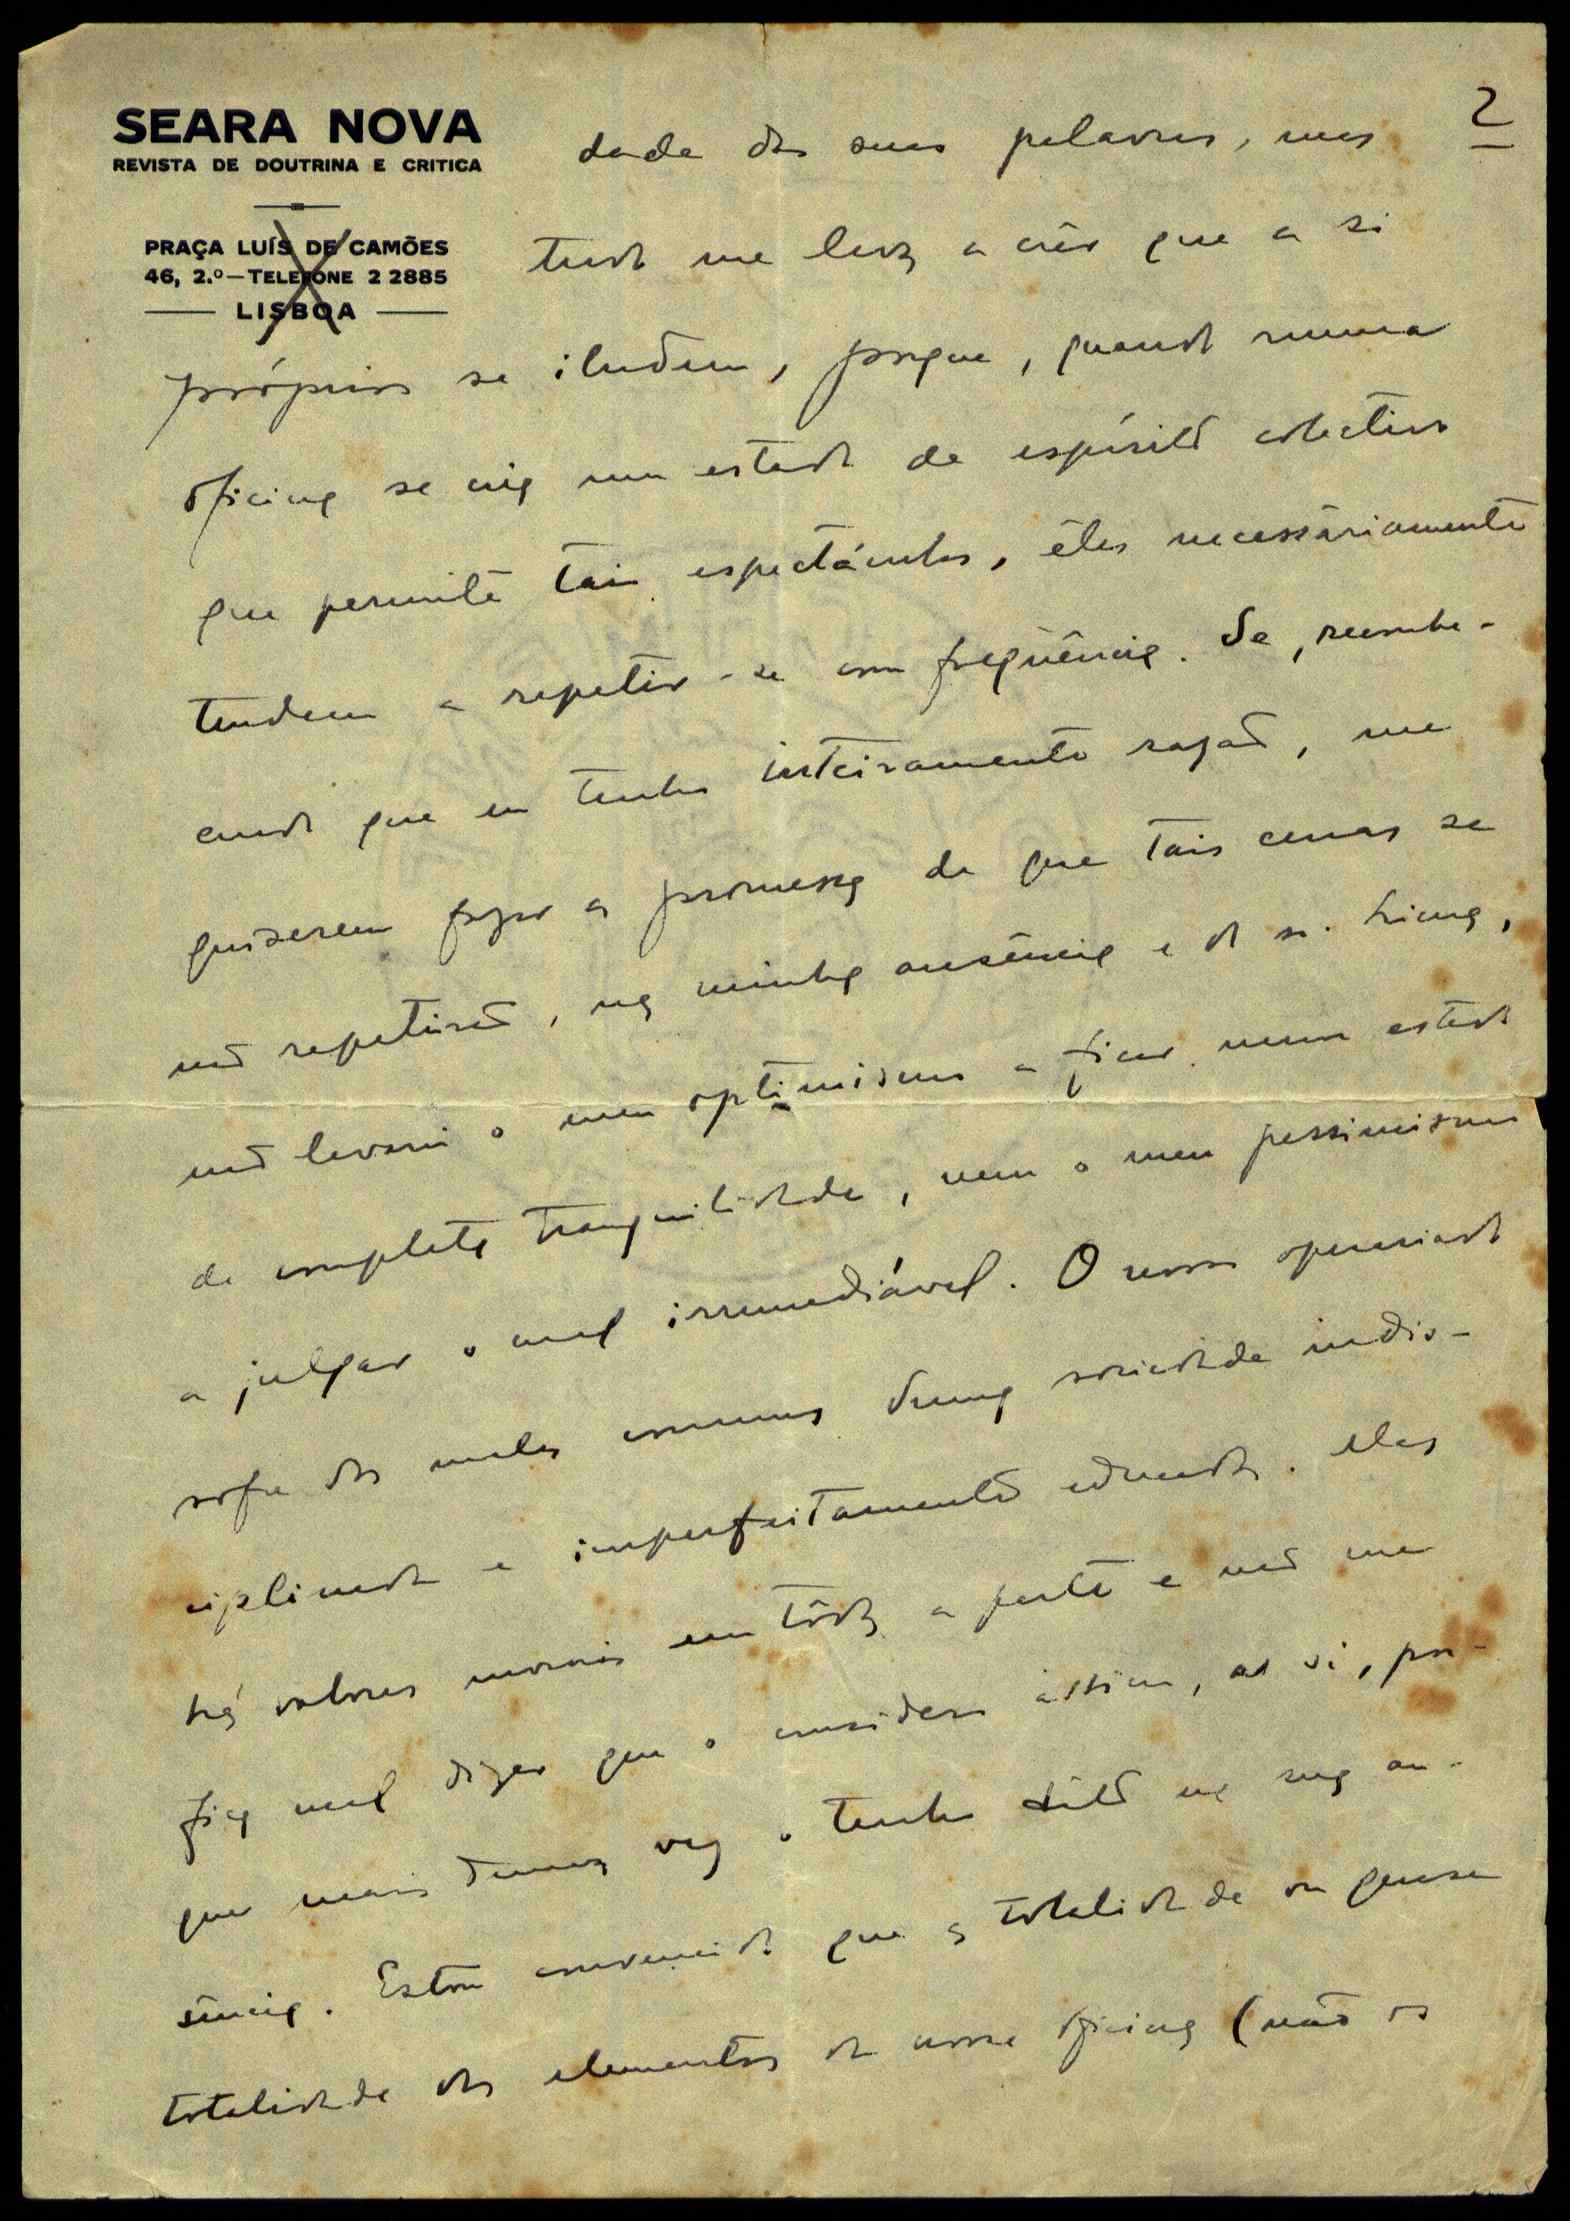 SEARA NOVA
REVISTA DE DOUTRINA E CRITICA
PRAÇA LUÍS DE CAMÕES
46, 2.º—TELEFONE 2 2885
LISBOA
2
dade das suas palavras, mas
tudo me leva a crêr que a si
próprios se iludem, porque, quando numa
oficina se cria um estado de espírito colectivo
que permite tais espectáculos, êles necessàriamente
tendem a repetir-se com freqüência. Se, reconhe-
cendo que eu tenho inteiramente razão, me
quiserem fazer a promessa de que tais cenas se
não repetirão, na minha ausência e do sr.
não levarei o meu optimismo a ficar num estado
de completa tranquilidade, nem o meu pessimismo
a julgar o mal irremediável. O nosso operariado
sofre dos males comuns duma sociedade indis-
ciplinada e imperfeitamente educada. Mas
há valores morais em tôda a parte e não me
fica mal dizer que o considero assim, ao sr., por-
que mais duma vez o tenho dito na sua au-
sência. Estou convencido que a totalidade ou quase
totalidade dos elementos da nossa oficina (não os